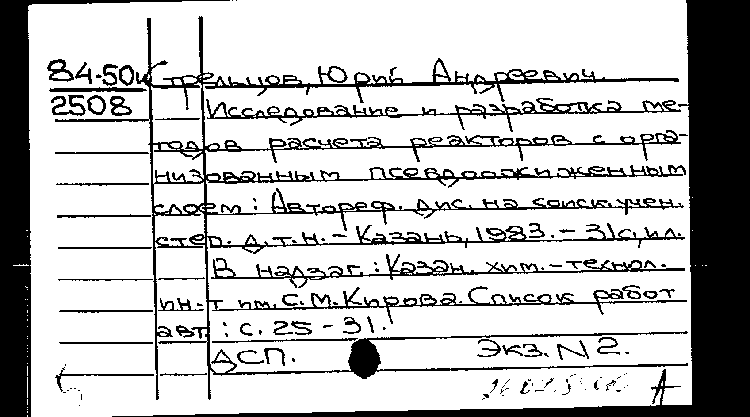 84-50к Стрельцов, Юрий Андреевич.
2508 Исследование и разработка ме-
тодов расчета реакторов с орга-
низованным псевдоожиженным
слоем : Автореф. дис. на соиск. учен.
степ. д.т.н. - Казань, 1983. - 31с., ил.
В надзаг. : Казан. хим.-технол.
ин-т им. С.М.Кирова. Список работ
авт. : с. 25 - 31.
ДСП. Экз. N 2.
А